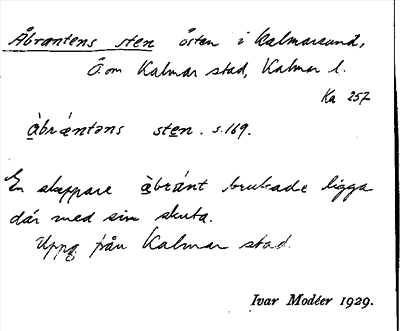 Åbrantens sten östen i Kalmarsund,
Ö. om Kalmar stad, Kalmar l.
Ka 257
åbrántəns sten. s. 169.
En skeppare åbránt brukade ligga
där med sin skuta.
Uppg. från Kalmar stad.
Ivar Modéer 1929.